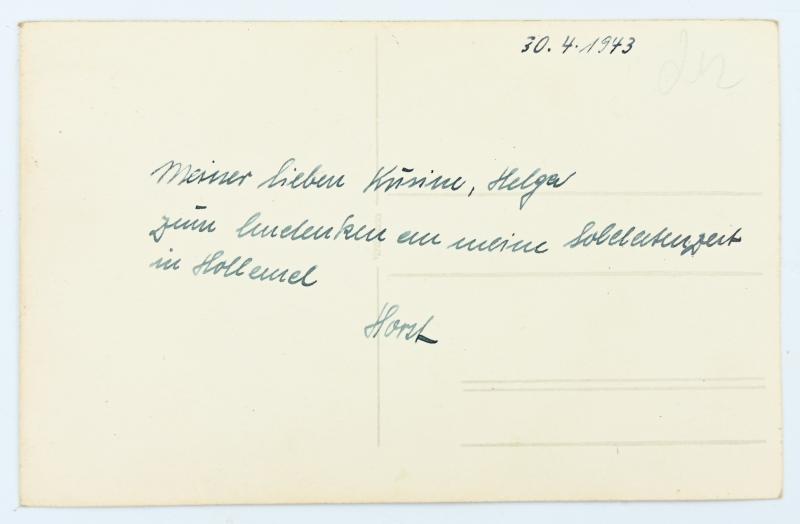 30.4.1943
Meiner lieben Kusine, Helga
zum Andenken an meine Soldatenzeit
in Holland
Horst